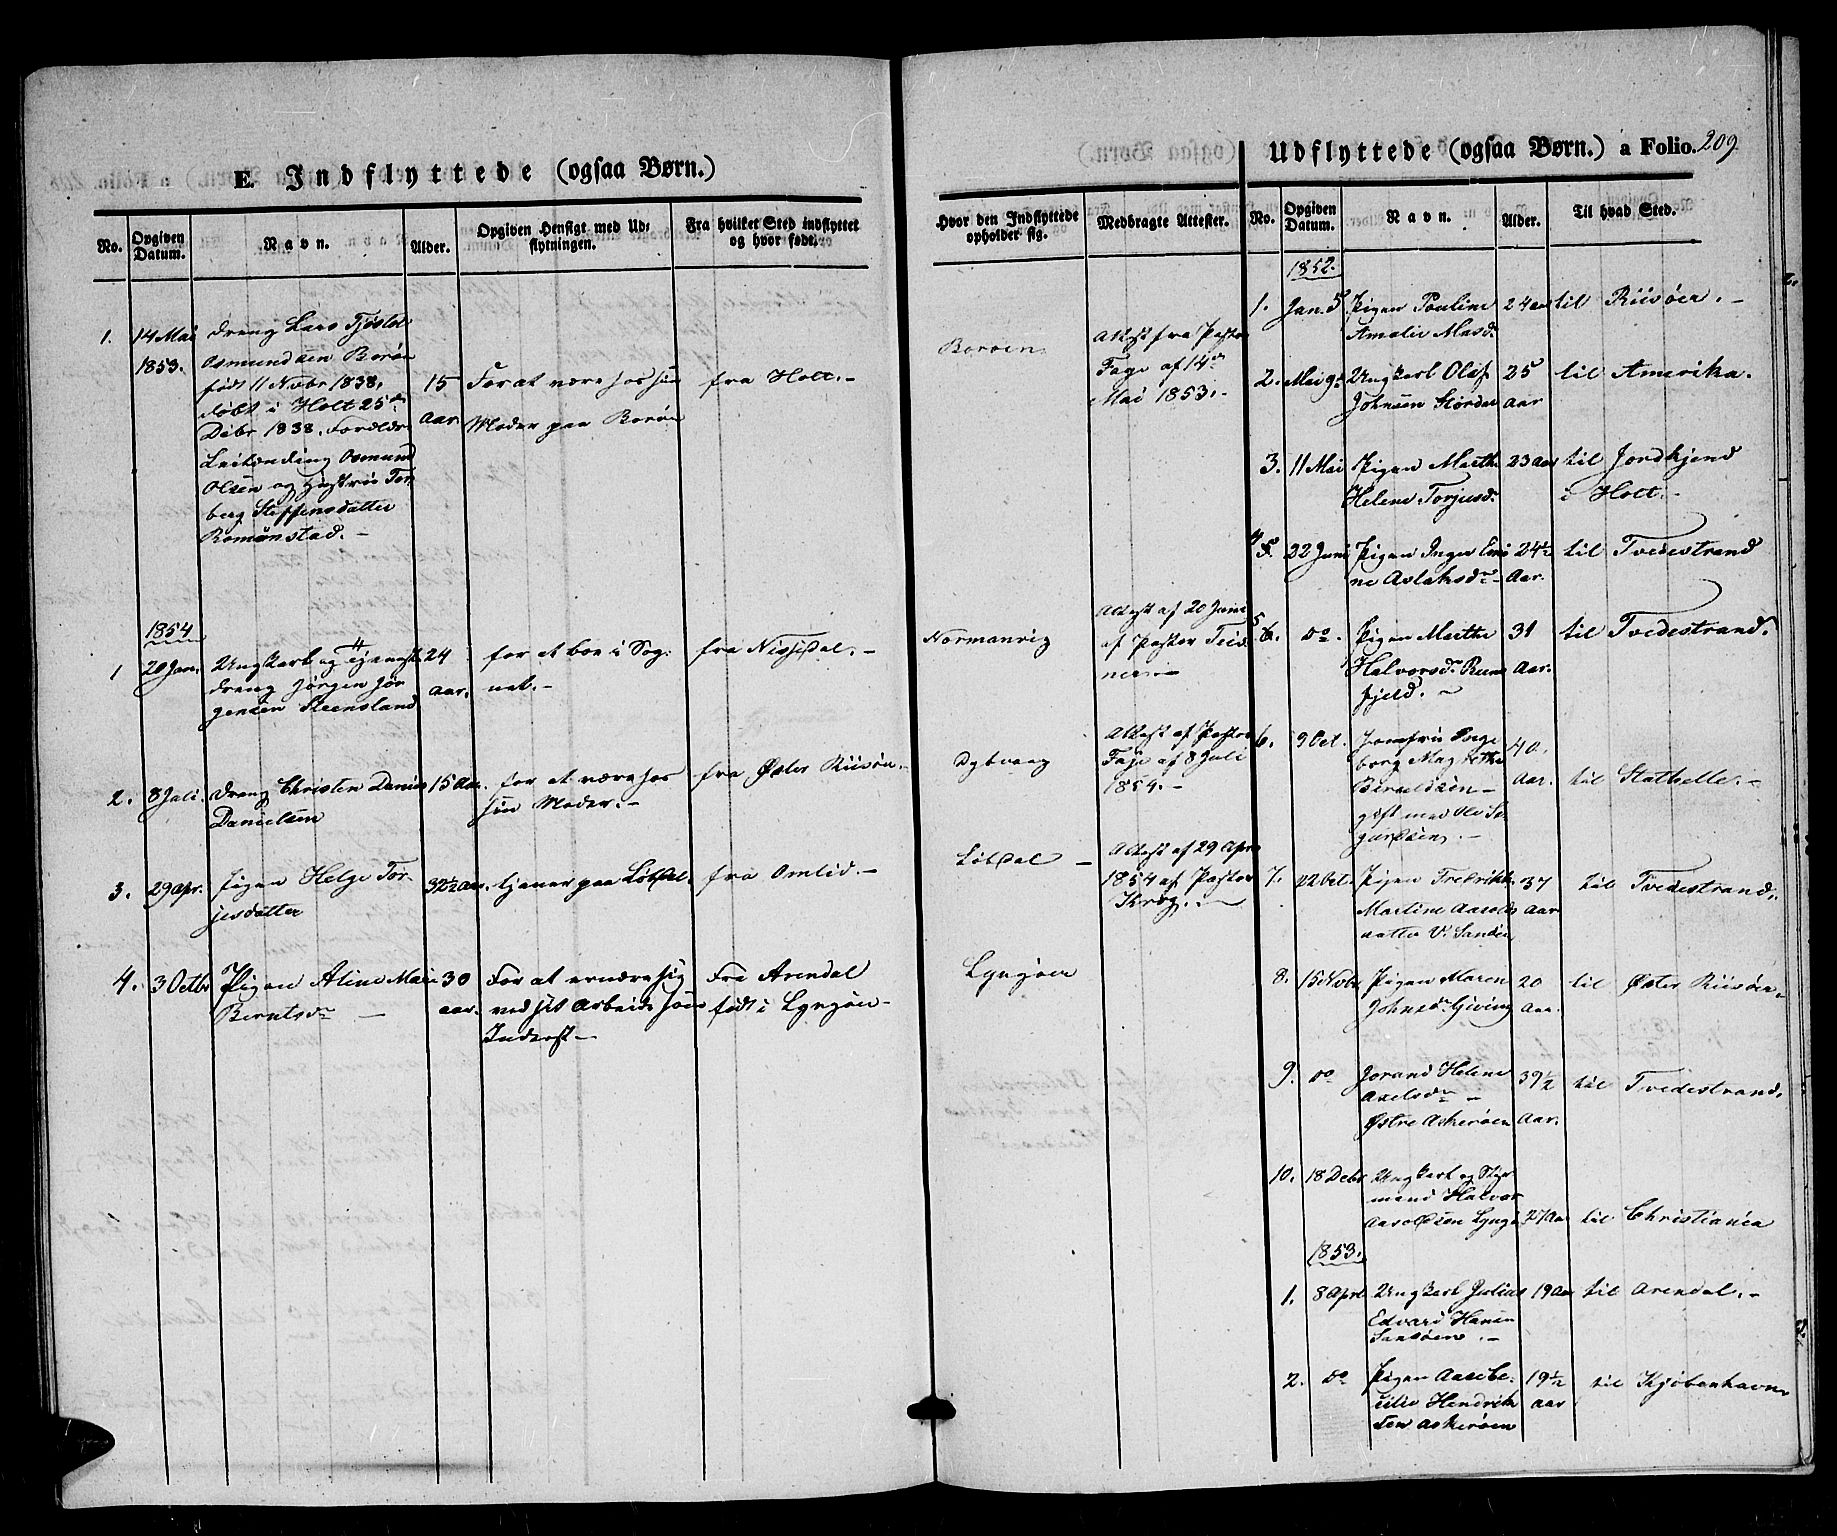 E. Indflyttede (ogsaa Børn.)
No.
Opgiven Datum.
Navn.
Alder.
Opgiven Hensigt med Udflytningen.
Fra hvilket Sted indflyttet og hvor født.
Hvor den Indflyttede opholder sig.
Medbragte Attester.
1.
14 Mai
1853.
Dreng Lars Tjøstol
Osmundsen Borøen
født 11 Novbr 1838,
døbt i Holt 25de
Debr 1838. Forældr
Osmund
Olsen og Hustru Tor-
berg Steffensdatter
15
aar.
For at være hos sin
Moder paa Borøen
fra Holt.-
Borøen
Attest fra Pastor
Faye af 14de
Mai 1853.-
1854
1
20 Jan.
Ungkarl og Tjeneste
dreng Jørgen Jør
gensen Steensland
24
aar.
for at boe i Sog-
net.-
fra Nissedal.-
Normanvig
Attest af 20 Juni
af Pastor
2.
8 Juli.
Dreng Christen Daniel
Danielsen
15 Aar.
for at være hos
sin Moder.-
fra Øster Riisøer.
Dybvaag
Attest af Pastor
Faye af 8 Juli
1854.-
3.
29 Apr.
Pigen Helge Tor-
jesdatter
32½ Aar.
tjener paa Løvdal.
fra Omlid.-
Løvdal -
Attest af 29 Apr.
1854 af Pastor
Krog.-
4.
3 Octbr
Pigen Aline Marie
Berntsdr -
30
aar.
For at ernære sig
ved sit Arbeide som
Inderst-
Fra Arendal
født i Lyngøer-
Lyngøer
Udflyttede (ogsaa Børn.) a Folio. 209.
No.
Opgiven Datum.
Navn.
Alder.
Til hvad Sted.
1852.
1.
Jan. 5
Pigen Pauline
Amalie Masdr
24 aar
til Riisøer.-
2.
Mai 9de
Ungkarl Olaf
Johnsen
25
aar
til Amerika.
3.
11 Mai
Pigen Marthe
Helene Torjusdr
23 aar
til Jordkjend
i Holt.-
4
5.
22 Juni
Pigen Inger Emi
ne Aslaksdr-
24½
Aar.
til Tvedestrand
5
6.
do.
Pigen Marthe
Halvorsdr
fjeld.
31
Aar.
til Tvedestrand.
6.
9 Oct.
Jomfru Inge
borg Magrethe
gift med Ole
40.
Aar.
til Stathelle.-
7.
22 Oct.
Pigen Fredrikke
Martine Aarolds
datter V. Sandøen
37
Aar
til Tvedestrand.
8.
15 Novbr
Pigen Maren
Johnsdr Giving
20
Aar.
til Øster Riisøer.
9.
do
Jorand Helene
Axelsdr -
Østre Askerøen
39½
Aar.
til Tvedestrand.
10.
18 Debr
Ungkarl og Styr
mand Halvor
Aaroldsen Lyngø
27 Aar
til Christiania
1853.
1.
8 Apri
Ungkarl Julius
Edvard Hansen
Sandøen.-
19 Aar
til Arendal.-
2.
do
Pigen Aase Ce-
cilie Hendrik
sen Askerøen
19½
aar
til Kjøbenhavn